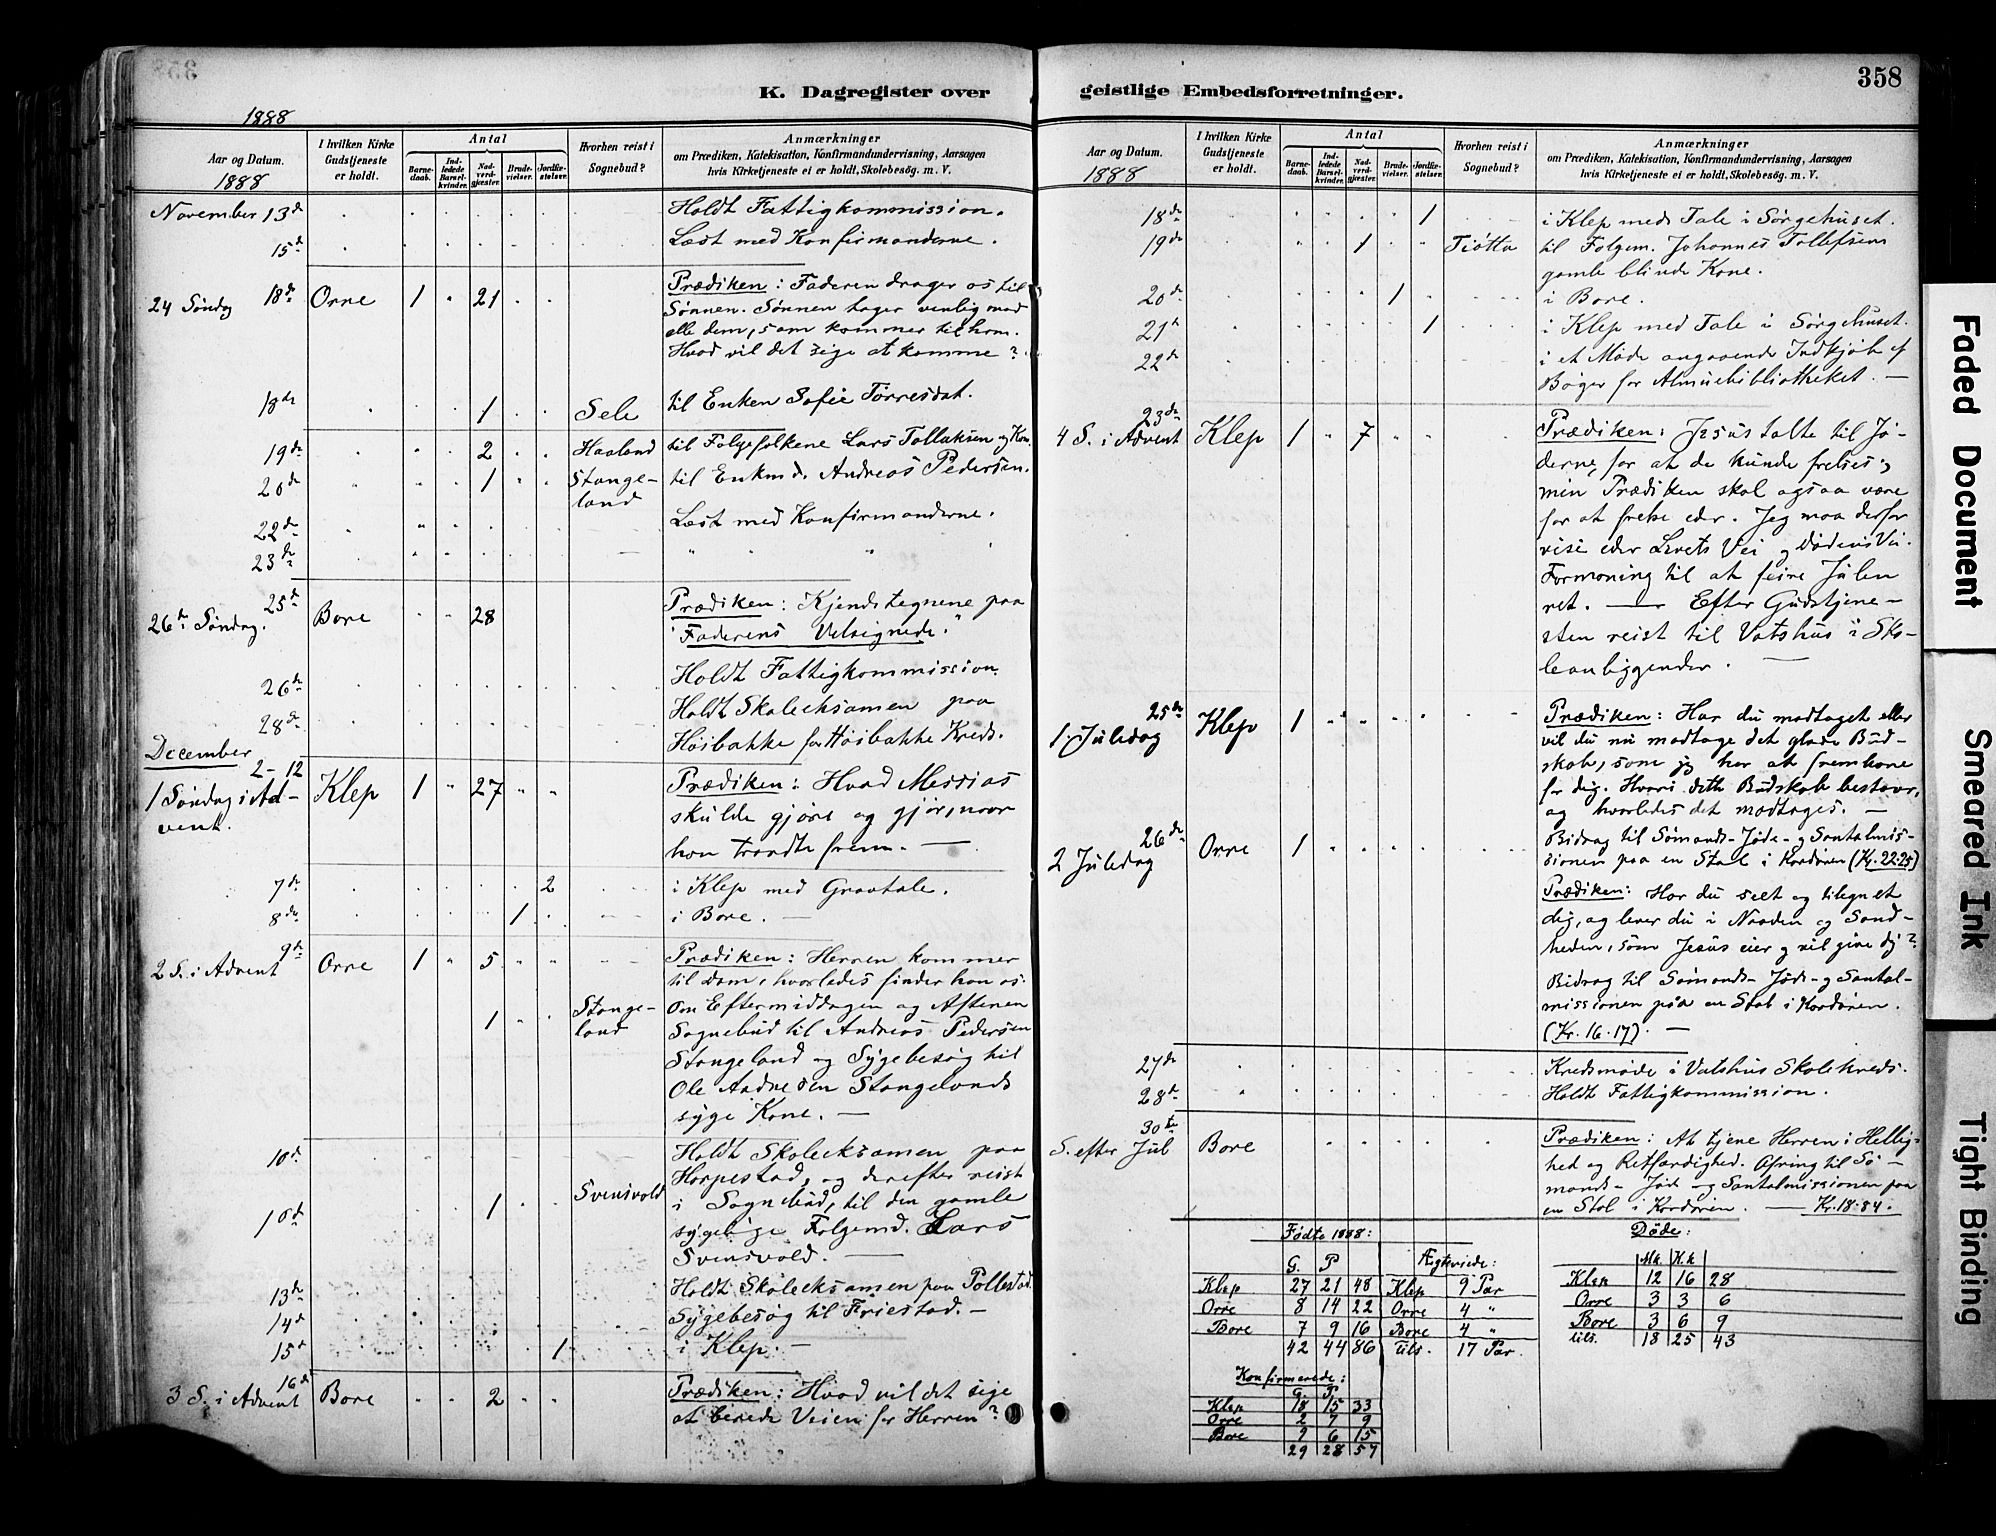 358
K. Dagregister over geistlige Embedsforretninger.
1888
Aar og Datum.
1888
I hvilken Kirke Gudstjeneste er holdt.
Antal
Barnedaab.
Indledede Barselkvinder.
Nadverdgjæster.
Brudevielser.
Jordfæstelser.
Hvorhen reist i Sognebud?
Anmærkninger
om Prædiken, Katekisation, Konfirmandundervisning, Aarsagen
hvis Kirketjeneste ei er holdt, Skolebesøg. m. V.
November 13de Holdt Fattigkommission.
15de Læst med Konfirmanderne.
24 Søndag 18de Orre 1 " 21 Prædiken: Faderen drager os til
Sønnen. Sønnen tager venlig mod
alle dem, som kommer til ham.
Hvad vil det sige at komme?
18de 1 Sele til Enken Sofie Tørresdat.
19de 2 Haaland til Folgefolkene Lars Tollaksen og Kone
20de 1 Stangeland til Enkmd. Andreas Pedersen.
22de Læst med Konfirmanderne.
23de " " " "
25de
26de Søndag. Bore " " 28 Prædiken: Kjendetegnene paa
"Faderens Velsignede."
26de Holdt Fattigkommission.
28de Holdt Skoleeksamen paa
Høibakke for Høibakke Kreds.
December
2-12
1 Søndag i Advent. Klep 1 " 27 Prædiken: Hvad Messias
skulde gjøre og gjør, naar
han traadte frem. —
7de 2 i Klep med Gravtale.
8de 1 i Bore. —
9de
2 S. i Advent Orre 1 " 5 Prædiken: Herren kommer
til Dom, hvorledes finder han os.
1 Stangeland Om Eftermiddagen og Aftenen
Sognebud til Andreas Pedersen
Stangeland og Sygebesøg til
Ole Aadnesen Stangelands
syge Kone. —
10de Holdt Skoleeksamen paa
Horpestad, og derefter reist
10de 1 Svensvold i Sognebud, til den gamle
sygelige Folgemd. Lars
Svensvold. —
13de Holdt Skoleeksamen paa Pollestad
14de Sygebesøg til Friestad. —
15de 1 i Klep. —
16de
3 S. i Advent Bore " " 2 Prædiken: Hvad vil det sige
at berede Veien for Herren?
Aar og Datum.
1888
I hvilken Kirke Gudstjeneste er holdt.
Antal
Barnedaab.
Indledede Barselkvinder.
Nadverdgjæster.
Brudevielser.
Jordfæstelser.
Hvorhen reist i Sognebud?
Anmærkninger
om Prædiken, Katekisation, Konfirmandundervisning, Aarsagen
hvis Kirketjeneste ei er holdt, Skolebesøg. m. V.
18de 1 i Klep med Tale i Sørgehuset.
19de 1 Tiøtta til Folgem. Johannes Tollefsens
gamle blinde Kone.
20de 1 i Bore.
21de 1 i Klep med Tale i Sørgehuset.
22de i et Møde angaaende Indkjøb af
Bøger for Almuebibliotheket. —
23de
4 S. i Advent Klep 1 " 7 Prædiken: Jesus talte til Jø-
derne, for at de kunde frelses;
min Prædiken skal ogsaa være
for at frelse eder. Jeg maa derfor
vise eder Livets Vei og Dødens Vei.
Formaning til at feire Julen
ret. — Efter Gudstjene-
sten reist til Vatshus i Sko-
leanliggender. —
25de
1. Juledag Klep 1 Prædiken: Har du modtaget eller
vil du nu modtage det glade Bud-
skab, som jeg har at frembære
for dig. Hvori dette Budskab bestaar,
og hvorledes det modtages. —
Bidrag til Sømands- Jøde- og Santalmis-
sionen paa en Stol i Kordøren (Kr. 22.25)
26de
2 Juledag Orre 1 Prædiken: Har du seet og tilegnet
dig, og lever du i Naaden og Sand-
heden, som Jesus eier og vil give dig?
Bidrag til Sømands- Jøde- og Santal-
missionen paa en Stol i Kordøren.
(Kr. 16.17). —
27de Kredsmøde i Vatshus Skolekreds.
28de Holdt Fattigkommission.
30te
S. efter Jul Bore Prædiken: At tjene Herren i Hellig-
hed og Retfærdighed. Ofring til Sø-
mands- Jøde- og Santalmissionen paa
en Stol i Kordøren. — Kr. 18.84.
Fødte 1888:
G. P
Klep 27 21 48
Orre 8 14 22
Bore 7 9 16
42 44 86
Ægteviede:
Klep 9 Par
Orre 4 "
Bore 4 "
Tils. 17 Par.
Døde:
Mk. K.k
Klep 12 16 28
Orre 3 3 6
Bore 3 6 9
tils. 18 25 43
Konfirmerede:
G. P.
Klep 18 15 33
Orre 2 7 9
Bore 9 6 15
29 28 57
Faded Document
Smeared Ink
Tight Binding